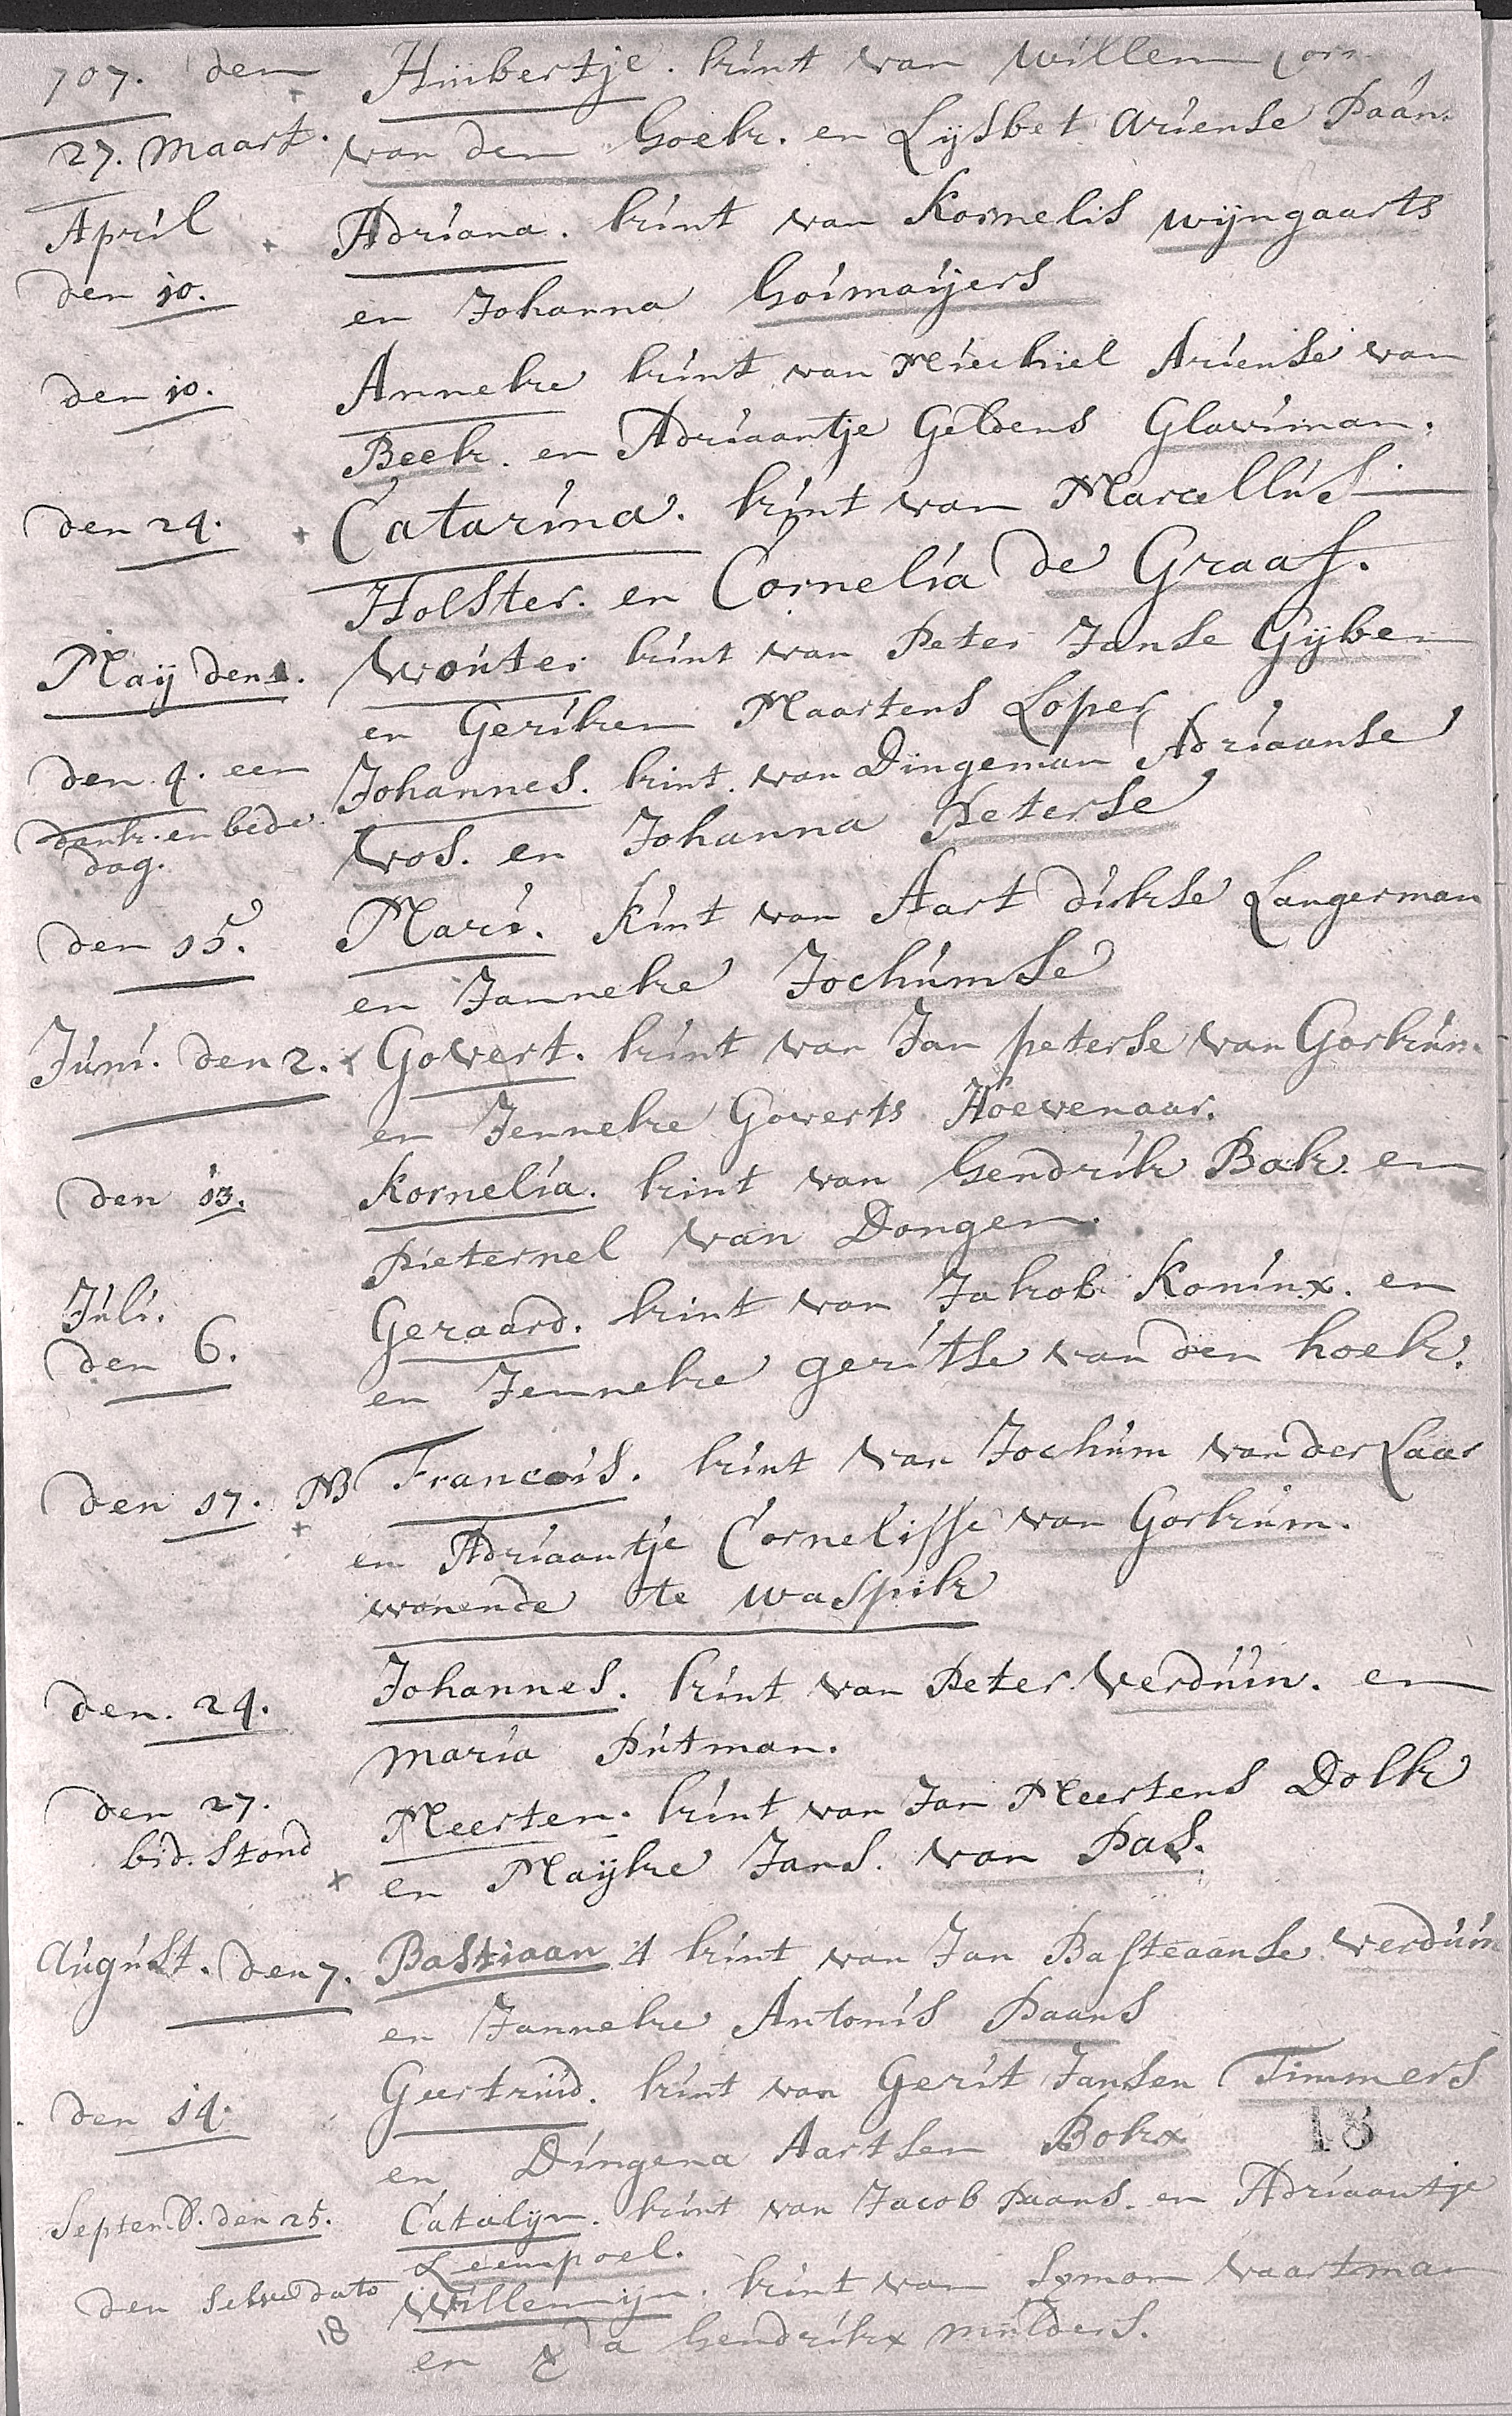 707. den Huibertje. kint van Willem Corn
27. Maart. van den Hoek. en Lijsbet Ariense Paans
April Adriana. kint van Kornelis Wijngaarts
den 10. en Johanna Hoimaijers
den 10. Anneke kint van Miechiel Ariense van
Beek. en Adriaantje Geldens Glaviman.
den 24. Catarina. kint van Marcellus
Holster. en Cornelia de Graaf.
Maij den 1. Wouter kint van Peter Janse Gijben
en Geriken Maartens Loper
den 4. een Johannes. kint. van Dingeman Adriaanse
dank. en bede dag. Vos. en Johanna Peterse
den 15. Mari. kint van Aart dirkse Langerman
en Janneke Jochumse
Juni. den 2. Govert. kint van Jan peterse van Gorkum.
en Jenneke Goverts Hoevenaar.
den 13. Kornelia. kint van Hendrik Bak. en
Pieternel van Dongen.
Juli.
den 6. Geraard. kint van Jakob Koninx. en
en Jenneke geritse van den hoek.
den 17. NB Francois. kint van Jochum van der Laar
en Adriaantje Cornelisse van Gorkum.
wonende te waspik
den. 24. Johannes. kint van Peter Verduin. en
Maria Putman.
den 27. Meerten. kint van Jan Meertens Dolk
bid. stond en Maijke Jans. van Pas.
August. den 7. Bastiaan 't kint van Jan Basteaanse Verduin
en Janneke Antonis Paans
den 14. Geertruid. kint van Gerit Jansen Timmers
en Dingena Aartsen Bokx 18
Septemb. den 25. Catalijn. kint van Jacob Paans. en Adriaantje
Leempoel.
den selve dato Willemijn. kint van Symon Vaartman
18 en da hendrikx mulders.